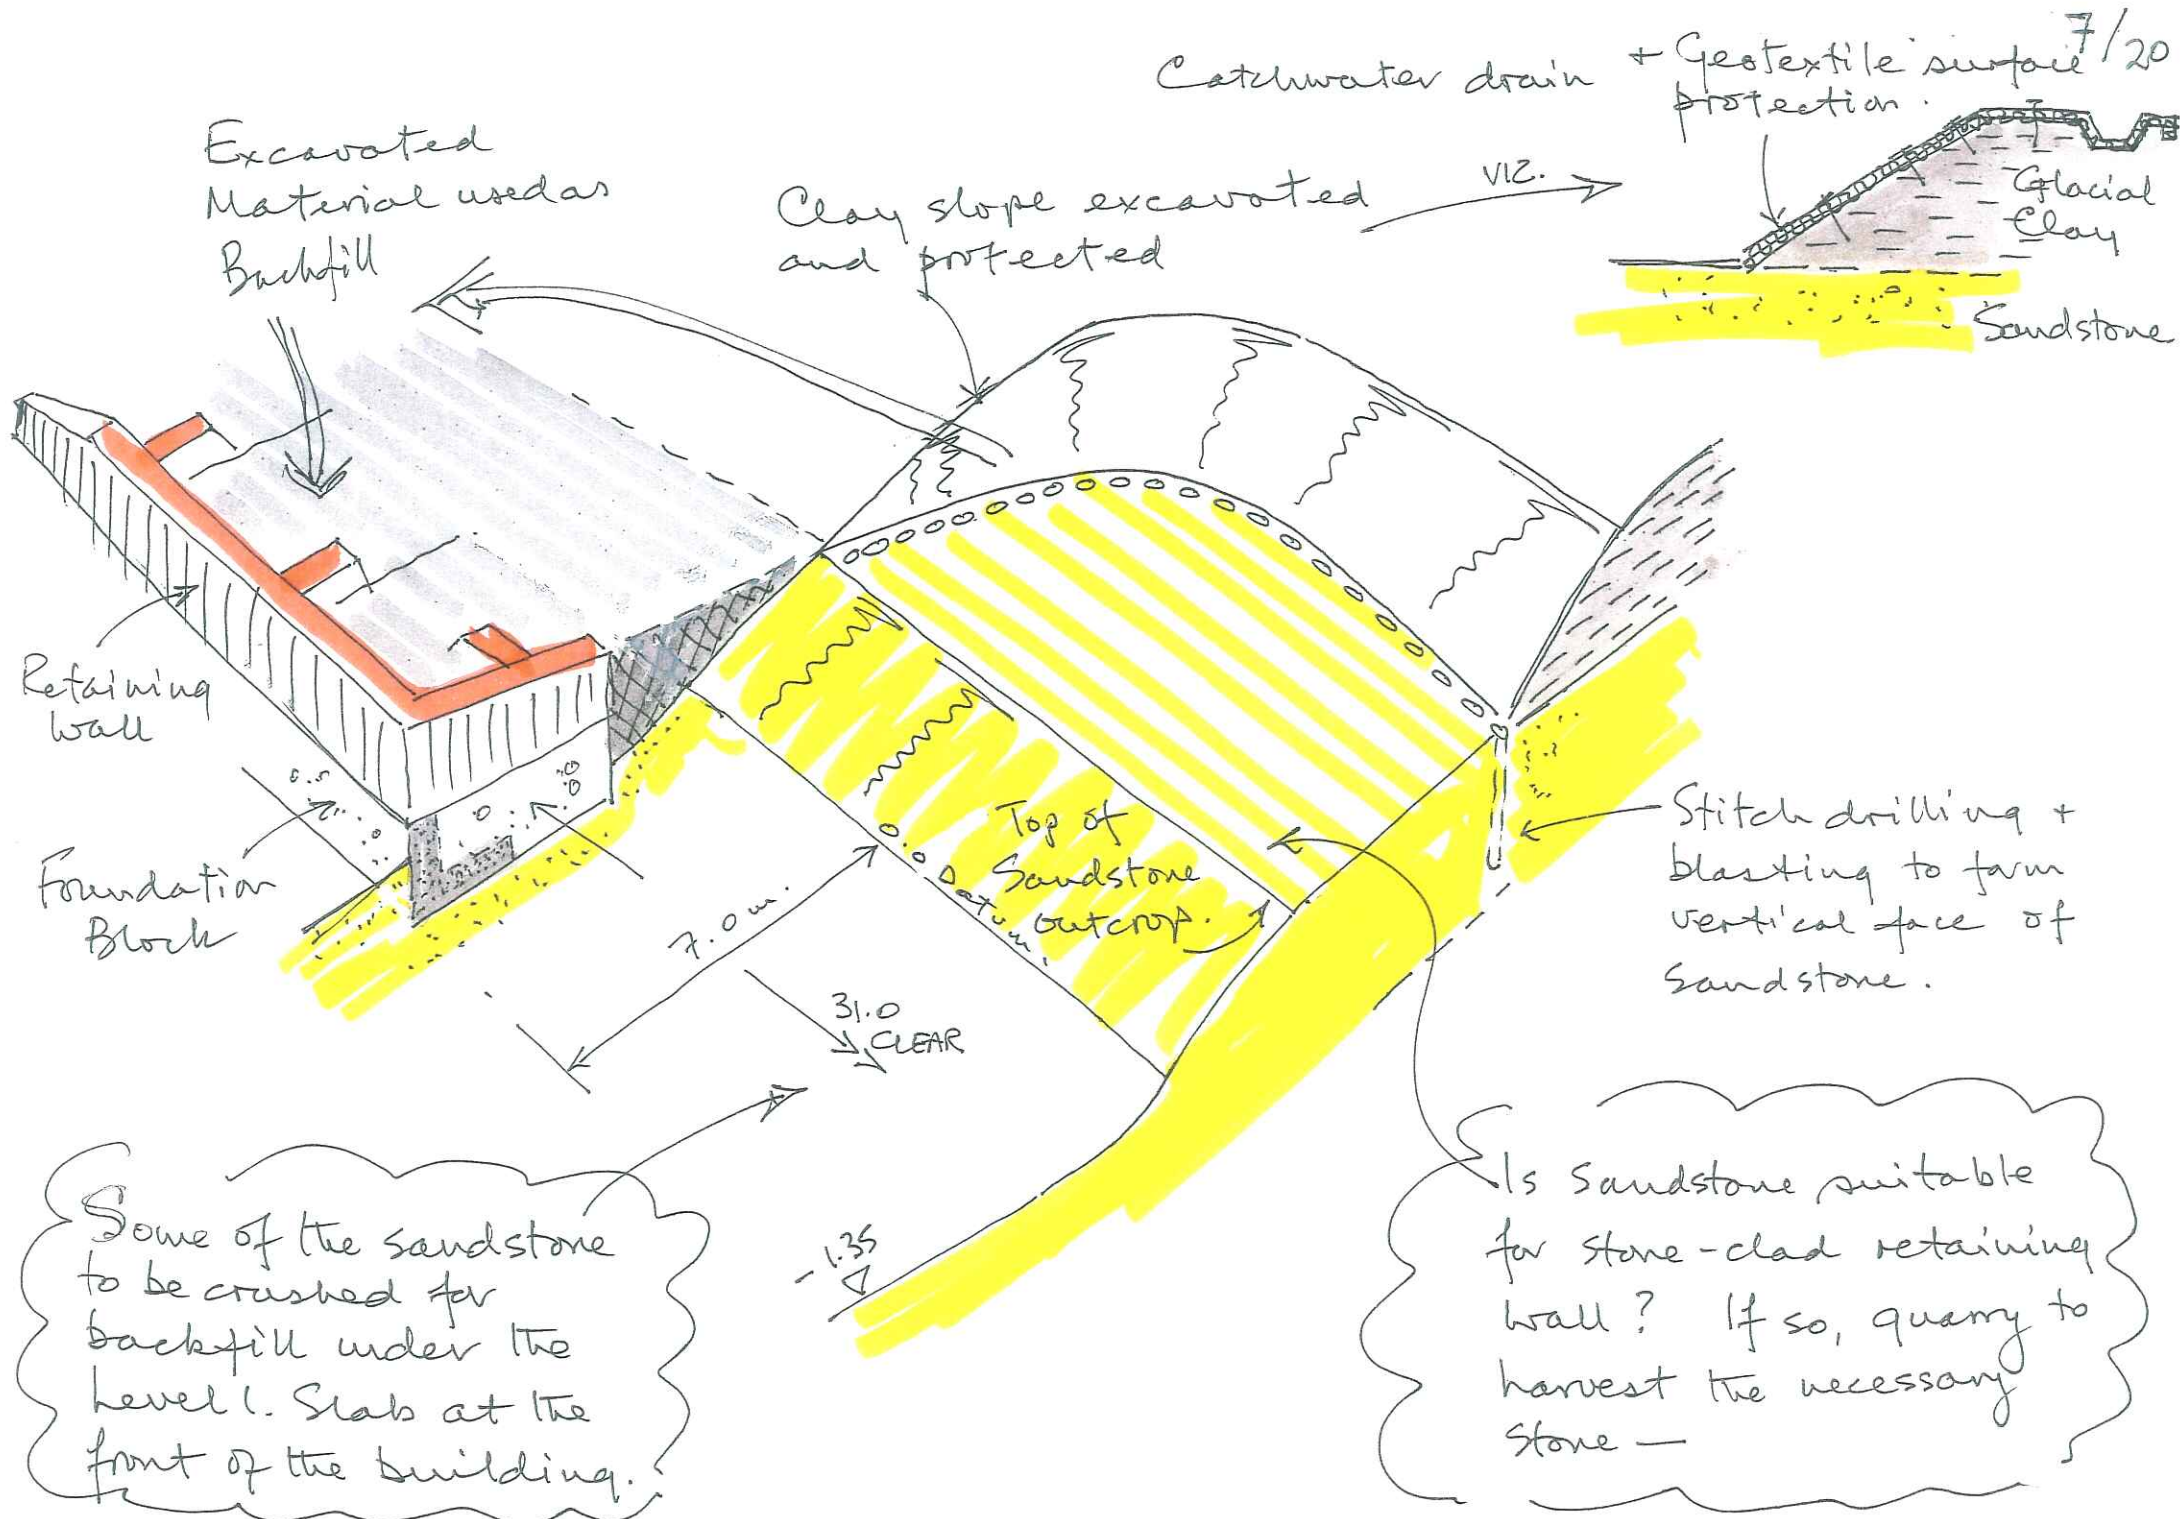 7/20
Catchwater drain + Geotextile surface
protection.
Excavated
Material used as
Backfill
Clay slope excavated
and protected
VIZ.
Glacial
Clay
Sandstone
Retaining
Wall
Foundation
Block
Top of
Sandstone
outcrop.
Datum
7.0 m.
31.0
CLEAR
-1.35
Stitch drilling +
blasting to form
vertical face of
sandstone.
Some of the sandstone
to be crushed for
backfill under the
Level 1. Slab at the
front of the building.
Is Sandstone suitable
for stone-clad retaining
wall? If so, quarry to
harvest the necessary
stone —